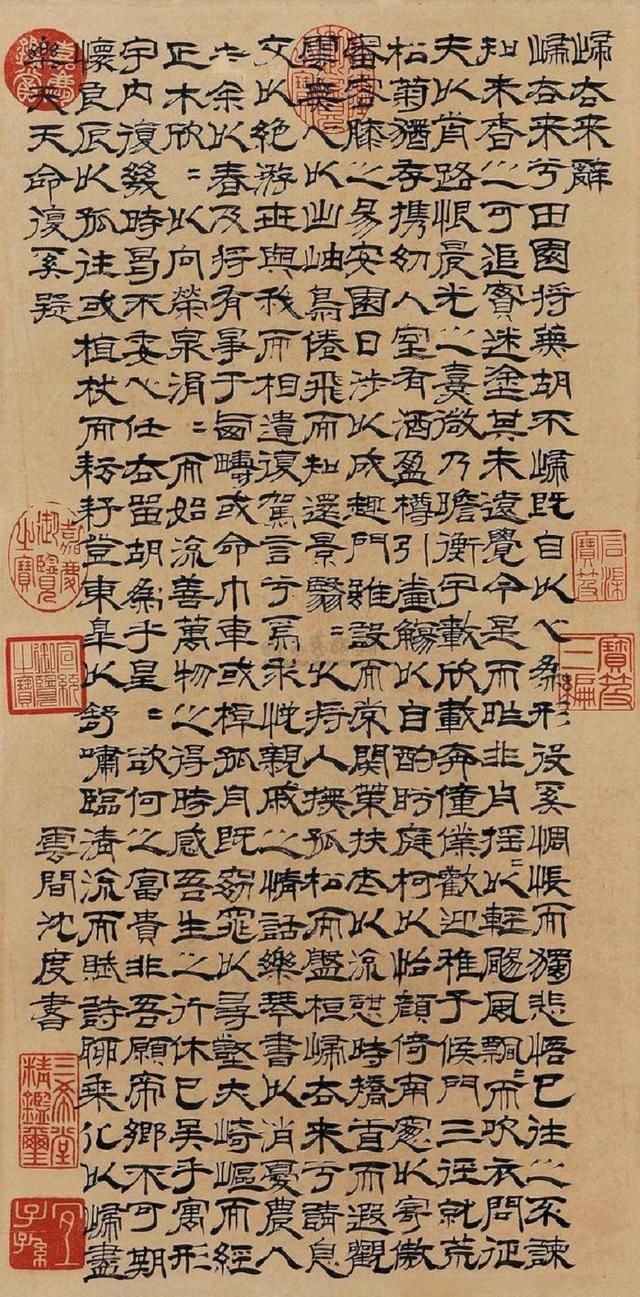 歸去來辭
歸去來兮田園將蕪胡不歸既自以心為形役奚惆悵而獨悲悟已往之不諫
知來者之可追實迷塗其未遠覺今是而昨非舟搖〻以輕颺風飄〻而吹衣問征
夫以前路恨晨光之熹微乃瞻衡宇載欣載奔僮僕歡迎稚子候門三徑就荒
松菊猶存携幼入室有酒盈樽引壺觴以自酌眄庭柯以怡顏倚南窗以寄傲
審容膝之易安園日涉以成趣門雖設而常關策扶老以流憩時橋首而遐觀
雲無心以出岫鳥倦飛而知還景翳〻以將入撫孤松而盤桓歸去來兮請息
交以絕游世與我而相遺復駕言兮焉求悅親戚之情話樂琴書以消憂農人
告余以春及將有事于西疇或命巾車或棹孤舟既窈窕以尋壑亦崎嶇而經
丘木欣〻以向榮泉涓〻而始流善萬物之得時感吾生之行休已矣乎寓形
宇内復幾時曷不委心任去留胡為乎皇〻欲何之富貴非吾願帝鄉不可期
懷良辰以孤往或植杖而耘耔登東皋以舒嘯臨清流而賦詩聊乘化以歸盡
樂夫天命復奚疑
雲間沈度書
石渠寶笈
寶笈三編
嘉慶御覽之寶
宣統御覽之寶
三希堂精鑑璽
宜子孫